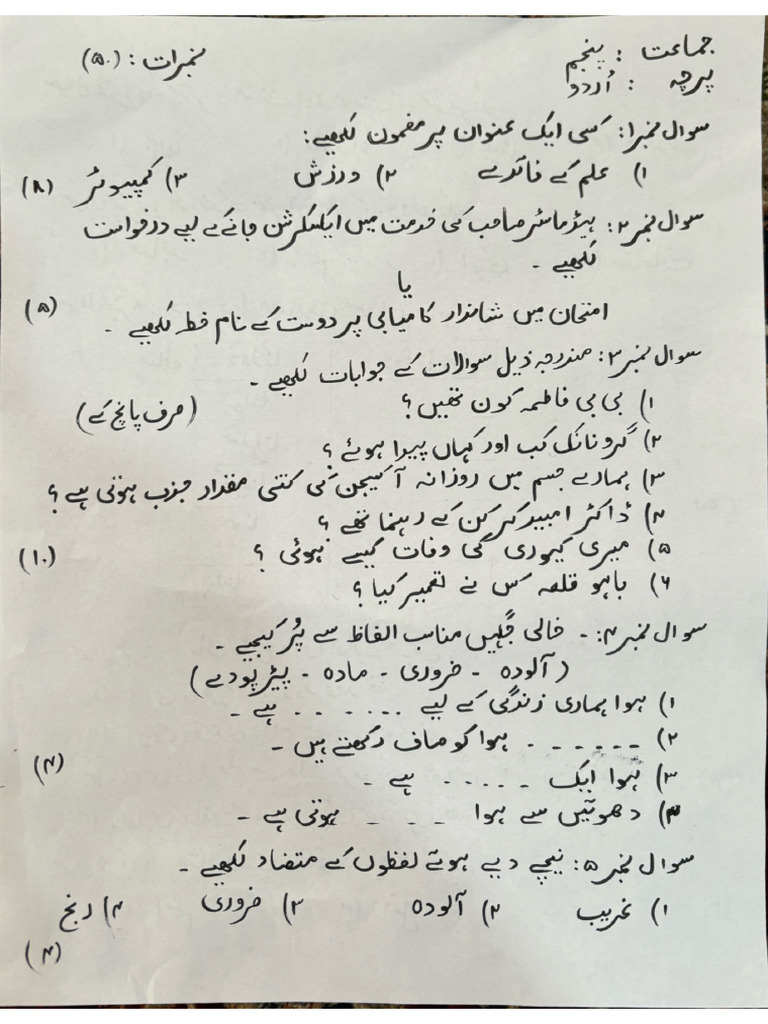 جماعت : پنجم نمبرات : (۵۰)
پرچہ : اُردو
سوال نمبر ۱: کسی ایک عنوان پر مضمون لکھیے :
۱) علم کے فائدے ۲) ورزش ۳) کمپیوٹر (۸)
سوال نمبر ۲: ہیڈ ماسٹر صاحب کی خدمت میں ایکسکرشن جانے کے لیے درخواست
لکھیے ۔
یا
امتحان میں شاندار کامیابی پر دوست کے نام خط لکھیے ۔ (۵)
سوال نمبر ۳: مندرجہ ذیل سوالات کے جوابات لکھیے ۔
۱) بی بی فاطمہ کون تھیں ؟ (صرف پانچ کے)
۲) گرونانک کب اور کہاں پیدا ہوئے ؟
۳) ہمارے جسم میں روزانہ آکسیجن کی کتنی مقدار جذب ہوتی ہے ؟
۴) ڈاکٹر امبیدکر کن کے رہنما تھے ؟
۵) میری کیوری کی وفات کیسے ہوئی ؟ (۱۰)
۶) باہو قلعہ کس نے تعمیر کیا ؟
سوال نمبر ۴: ۔ خالی جگہیں مناسب الفاظ سے پُر کیجیے ۔
(آلودہ ۔ ضروری ۔ مادہ ۔ پیڑ پودے)
۱) ہوا ہماری زندگی کے لیے ۔۔۔۔۔۔ ہے ۔
۲) ۔۔۔۔۔۔ ہوا کو صاف رکھتے ہیں ۔
۳) ہوا ایک ۔۔۔۔۔ ہے ۔ (۴)
۴) دھوئیں سے ہوا ۔۔۔ ہوتی ہے ۔
سوال نمبر ۵: نیچے دیے ہوئے لفظوں کے متضاد لکھیے ۔
۱) غریب ۲) آلودہ ۳) ضروری ۴) رنج
(۴)